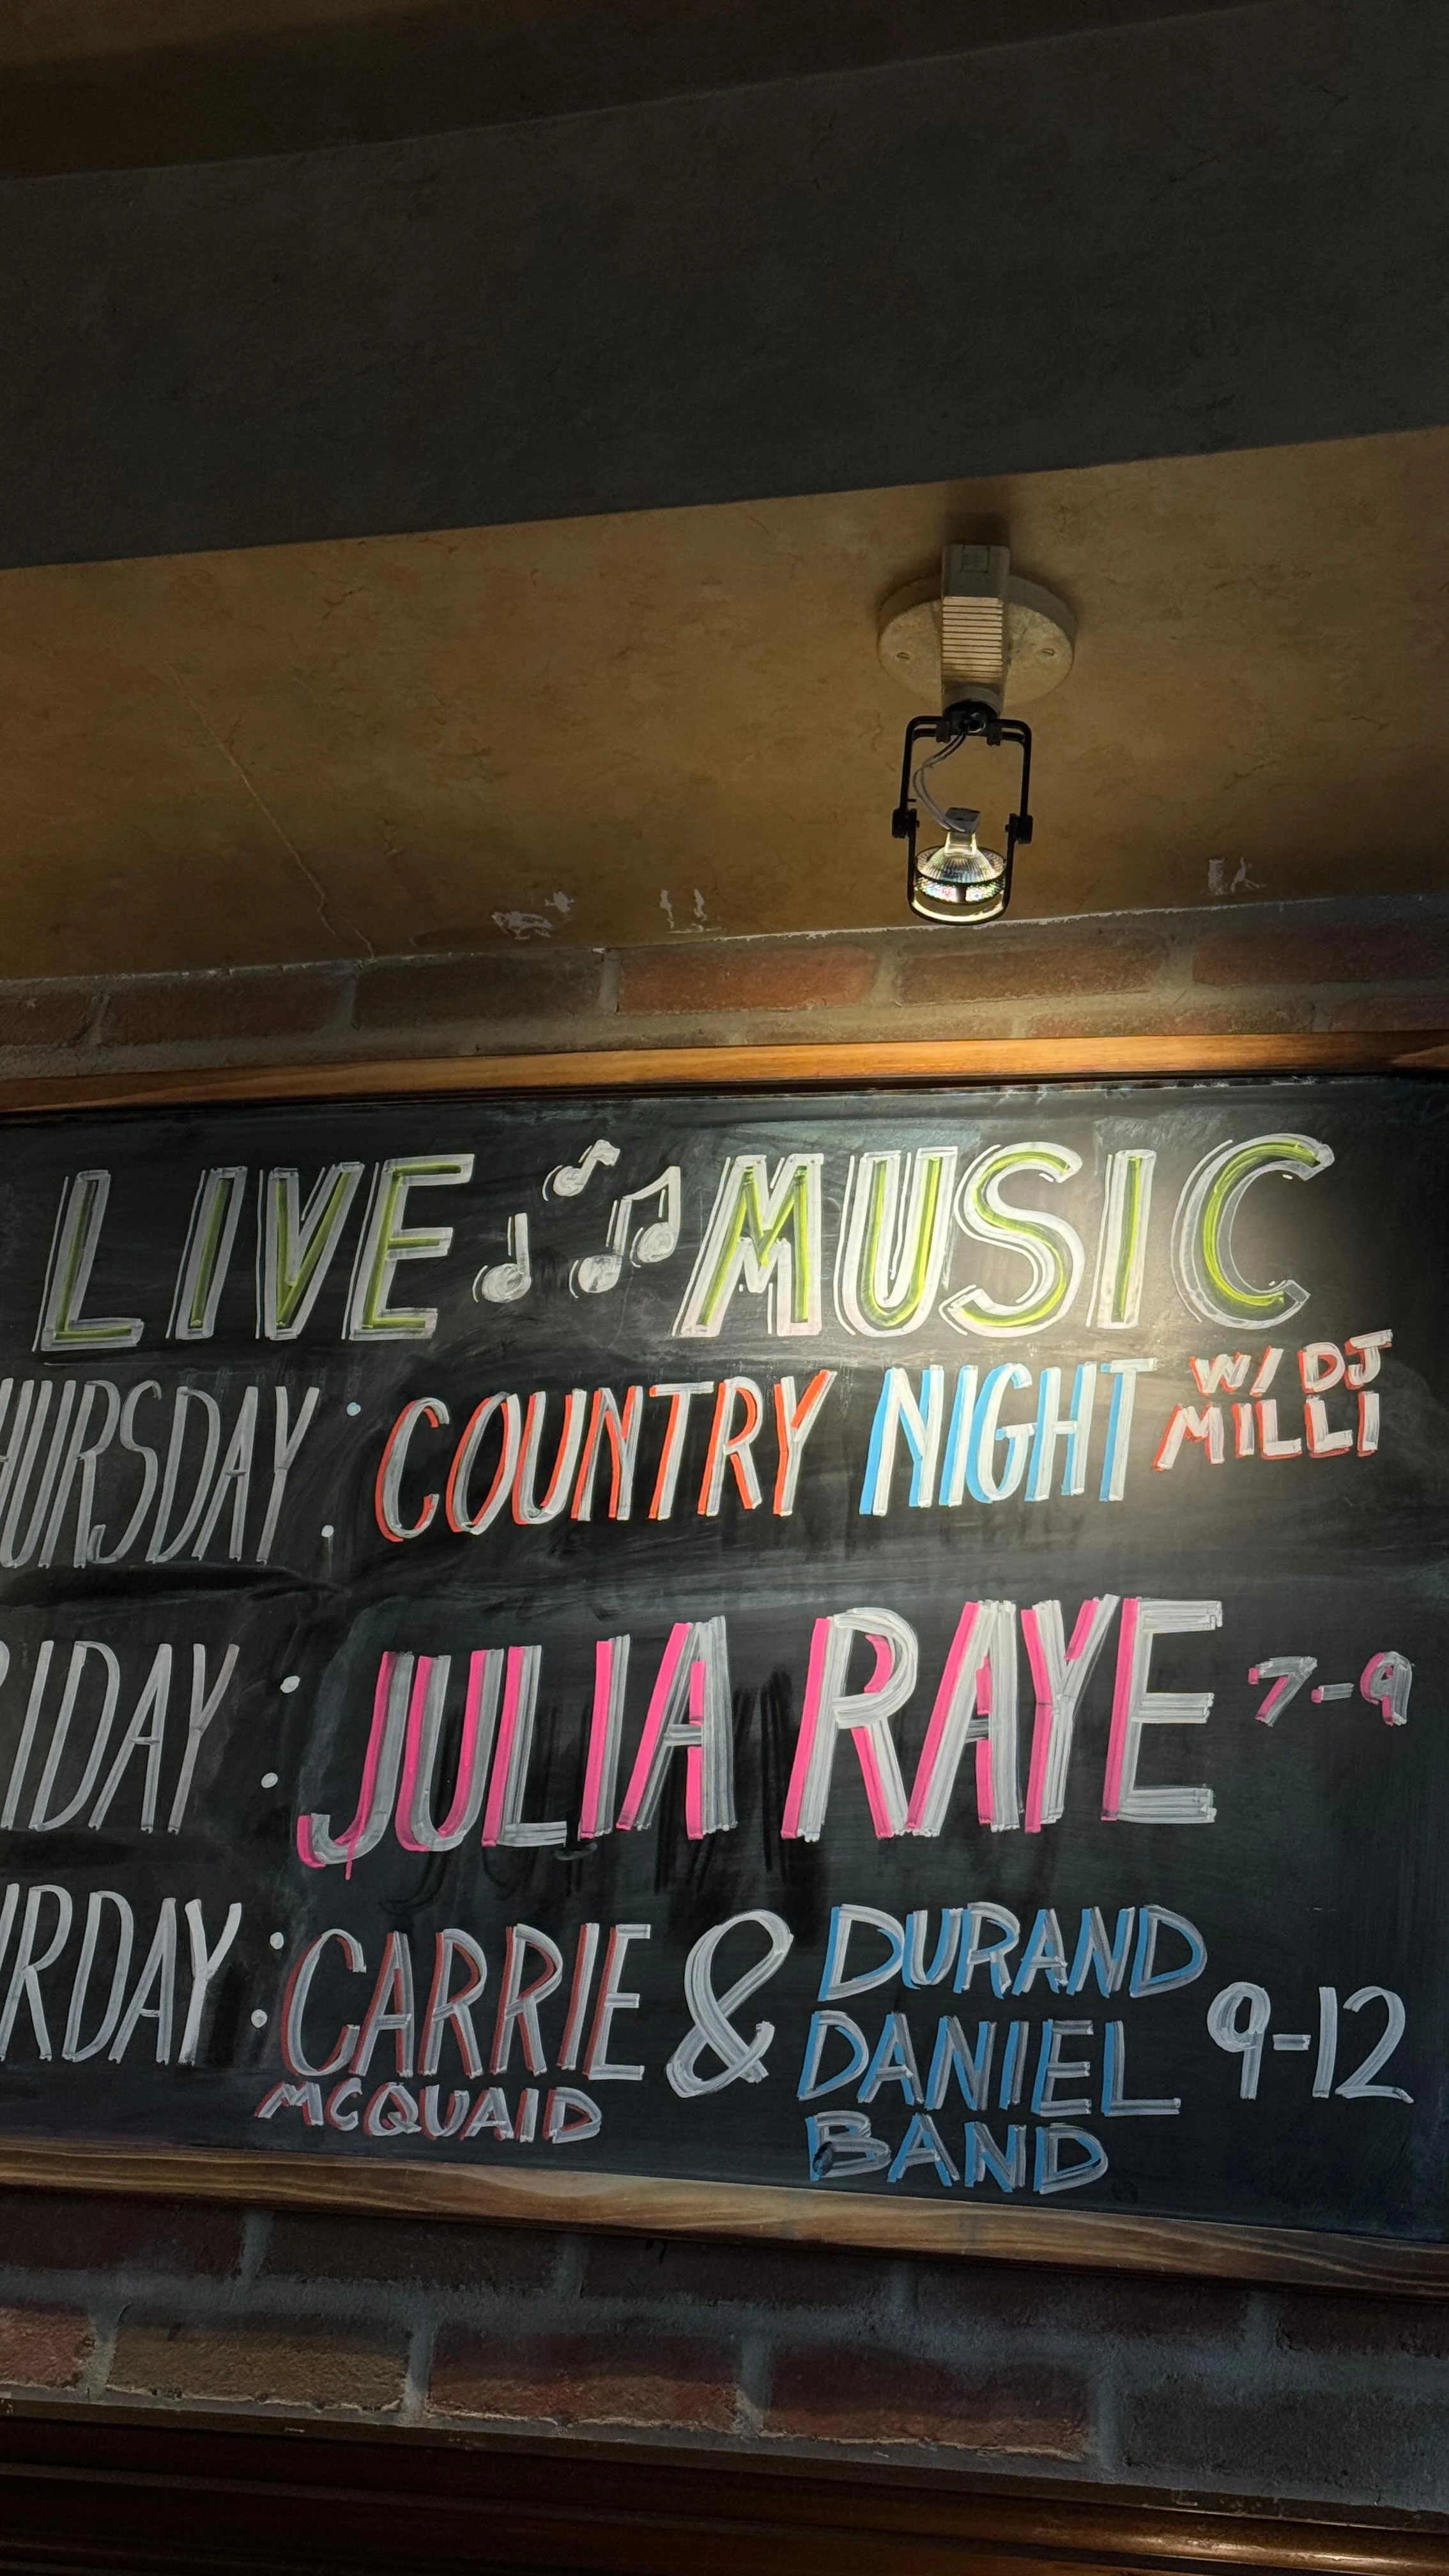 LIVE MUSIC
HURSDAY: COUNTRY NIGHT W/ DJ
MILLI
RIDAY: JULIA RAYE 7-9
RDAY: CARRIE & DURAND
MCQUAID DANIEL 9-12
BAND